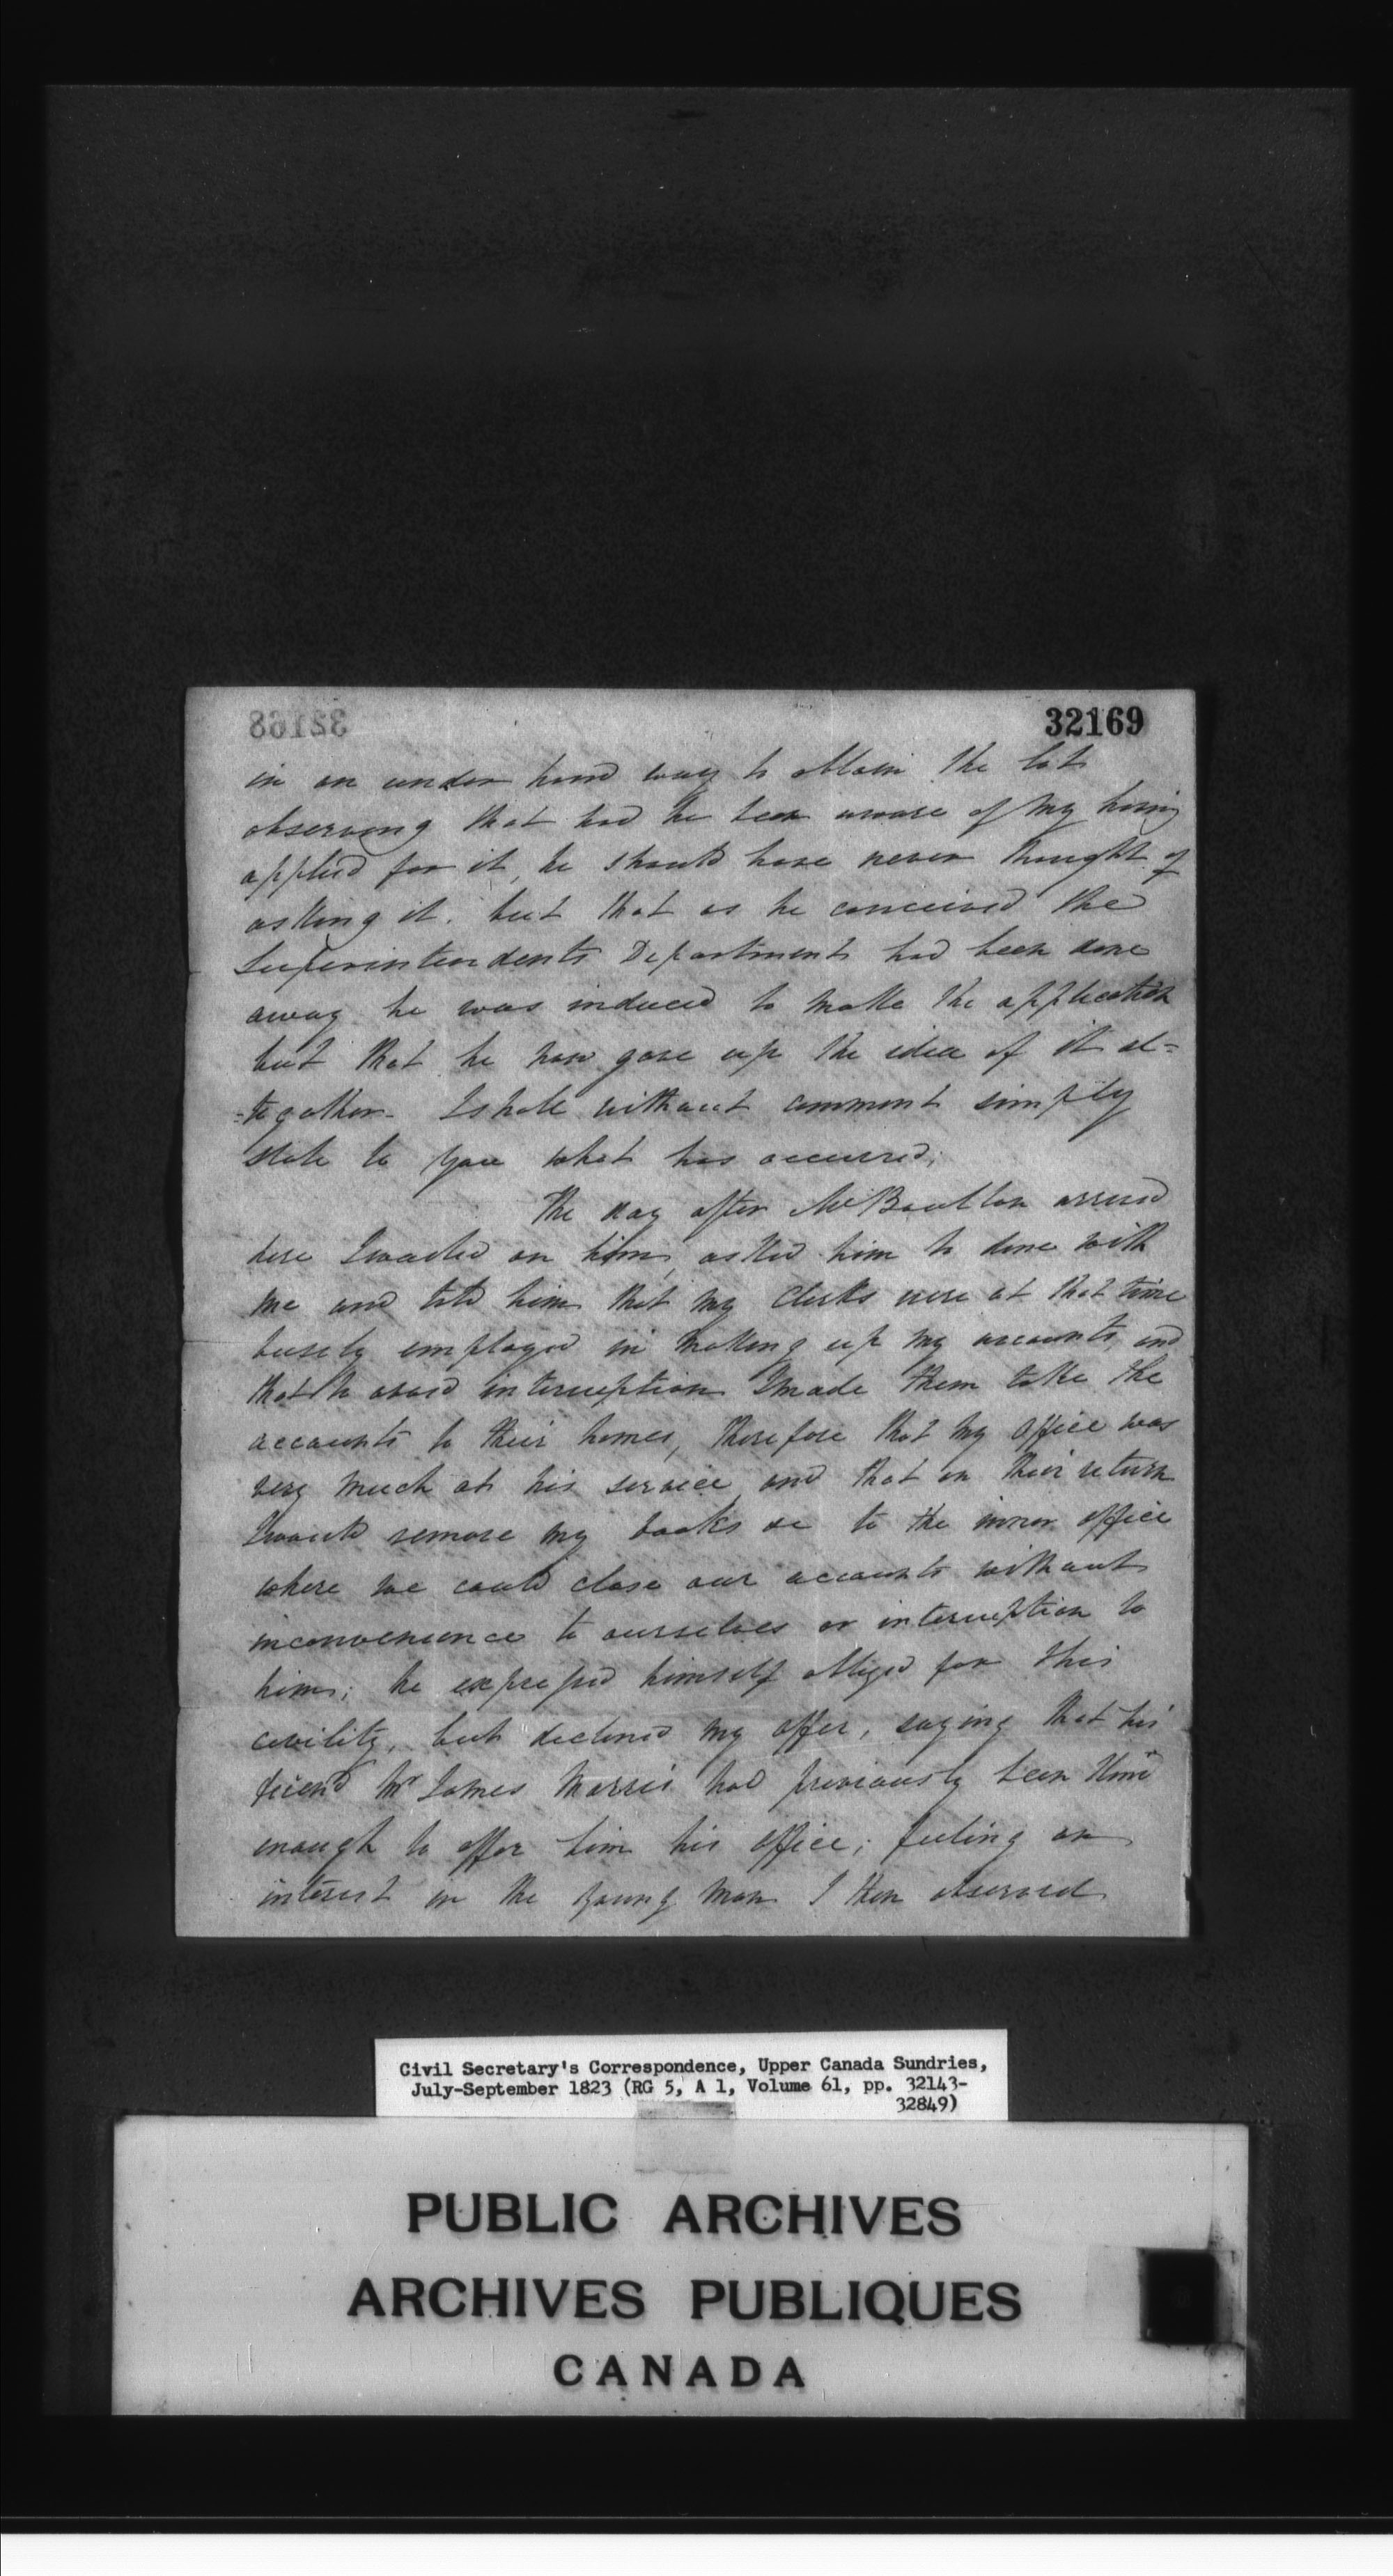 32168
32169
in an under hand way to obtain the lot
observing that had he been aware of my having
applied for it, he should have never thought of
asking it. but that as he conceived the
Superintendents Department had been done
away he was induced to make the application
but that he now gave up the idea of it al=
=together. I shall without comment simply
state to you what has occurred;
The day after Mr Boulton arrived
here I waited on him, asked him to dine with
me and told him that my Clerks were at that time
busely employed in making up my accounts, and
that to avoid interruption I made them take the
accounts to their homes, therefore that my office was
very much at his service and that on their return
I would remove my books &c to the inner office
where we could close our accounts without
inconvenience to ourselves or interruption to
him; he expressed himself obliged for this
civility, but declined my offer, saying that his
friend Mr James Morris had previously been kind
enough to offer him his office; feeling an
interest in the young man I then observed
Civil Secretary's Correspondence, Upper Canada Sundries,
July-September 1823 (RG 5, A 1, Volume 61, pp. 32143-
32849)
PUBLIC ARCHIVES
ARCHIVES PUBLIQUES
CANADA